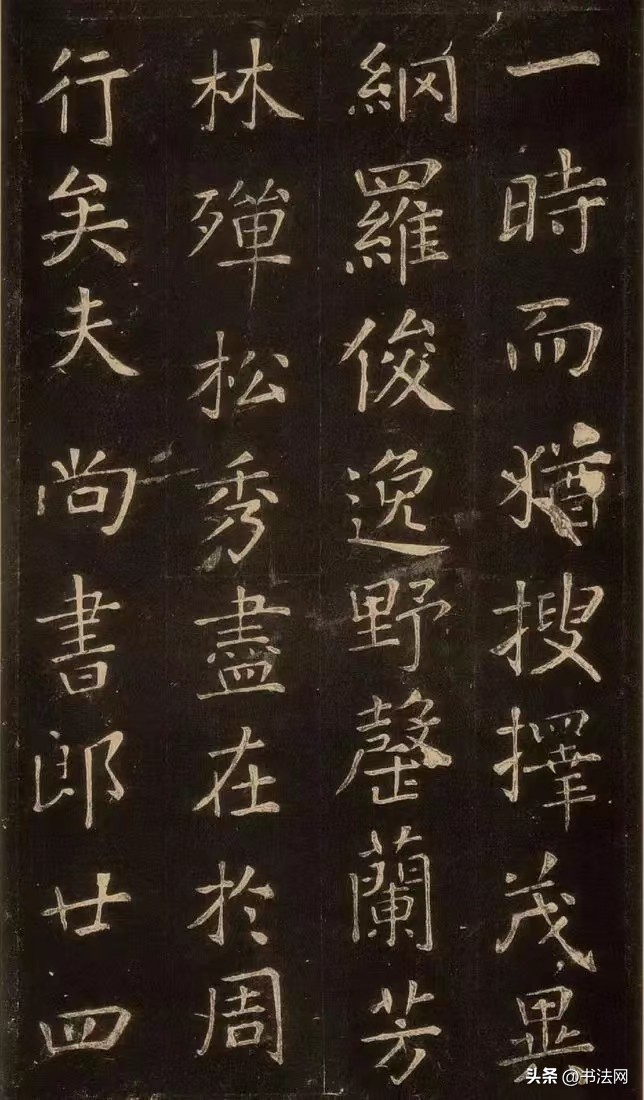 一時而猶搜擇茂異
網羅俊逸野罄蘭芳
林殫松秀盡在於周
行矣夫尚書郎廿四
头条 @书法网